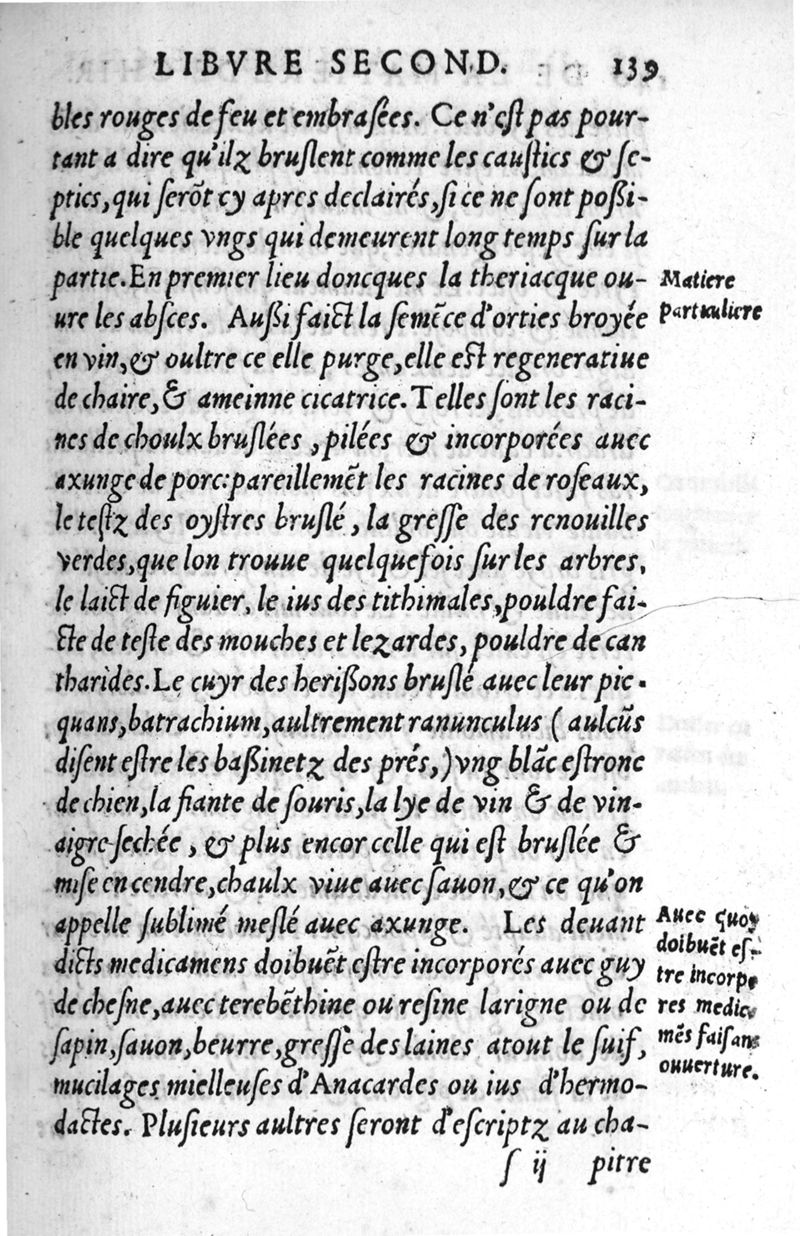 LIBVRE SECOND. 139
bles rouges de feu et embrasées. Ce n'est pas pour-
tant a dire qu'ilz bruslent comme les caustics & se-
ptics, qui serōt cy apres declairés, si ce ne sont possi-
ble quelques vngs qui demeurent long temps sur la
partie. En premier lieu doncques la theriacque ou-
ure les absces. Aussi faict la semēce d'orties broyée
en vin, & oultre ce elle purge, elle est regeneratiue
de chaire, & ameinne cicatrice. Telles sont les raci-
nes de choulx bruslées, pilées & incorporées auec
axunge de porc: pareillemēt les racines de roseaux,
le testz des oystres bruslé, la gresse des renouilles
verdes, que lon trouue quelquefois sur les arbres,
le laict de figuier, le ius des tithimales, pouldre fai-
cte de teste des mouches et lezardes, pouldre de can
tharides. Le cuyr des herissons bruslé auec leur pic-
quans, batrachium, aultrement ranunculus (aulcūs
disent estre les bassinetz des prés,) vng blāc estronc
de chien, la fiante de souris, la lye de vin & de vin-
aigre sechée, & plus encor celle qui est bruslée &
mise en cendre, chaulx viue auec sauon, & ce qu'on
appelle sublimé meslé auec axunge. Les deuant
dicts medicamens doibuēt estre incorporés auec guy
de chesne, auec terebēthine ou resine larigne ou de
sapin, sauon, beurre, gresse des laines atout le suif,
mucilages mielleuses d'Anacardes ou ius d'hermo-
dactes. Plusieurs aultres seront d'escriptz au cha-
s ij pitre
Matiere
particuliere
Auec quoy
doibuēt es-
tre incorpo
res medica
mēs faisans
ouuerture.